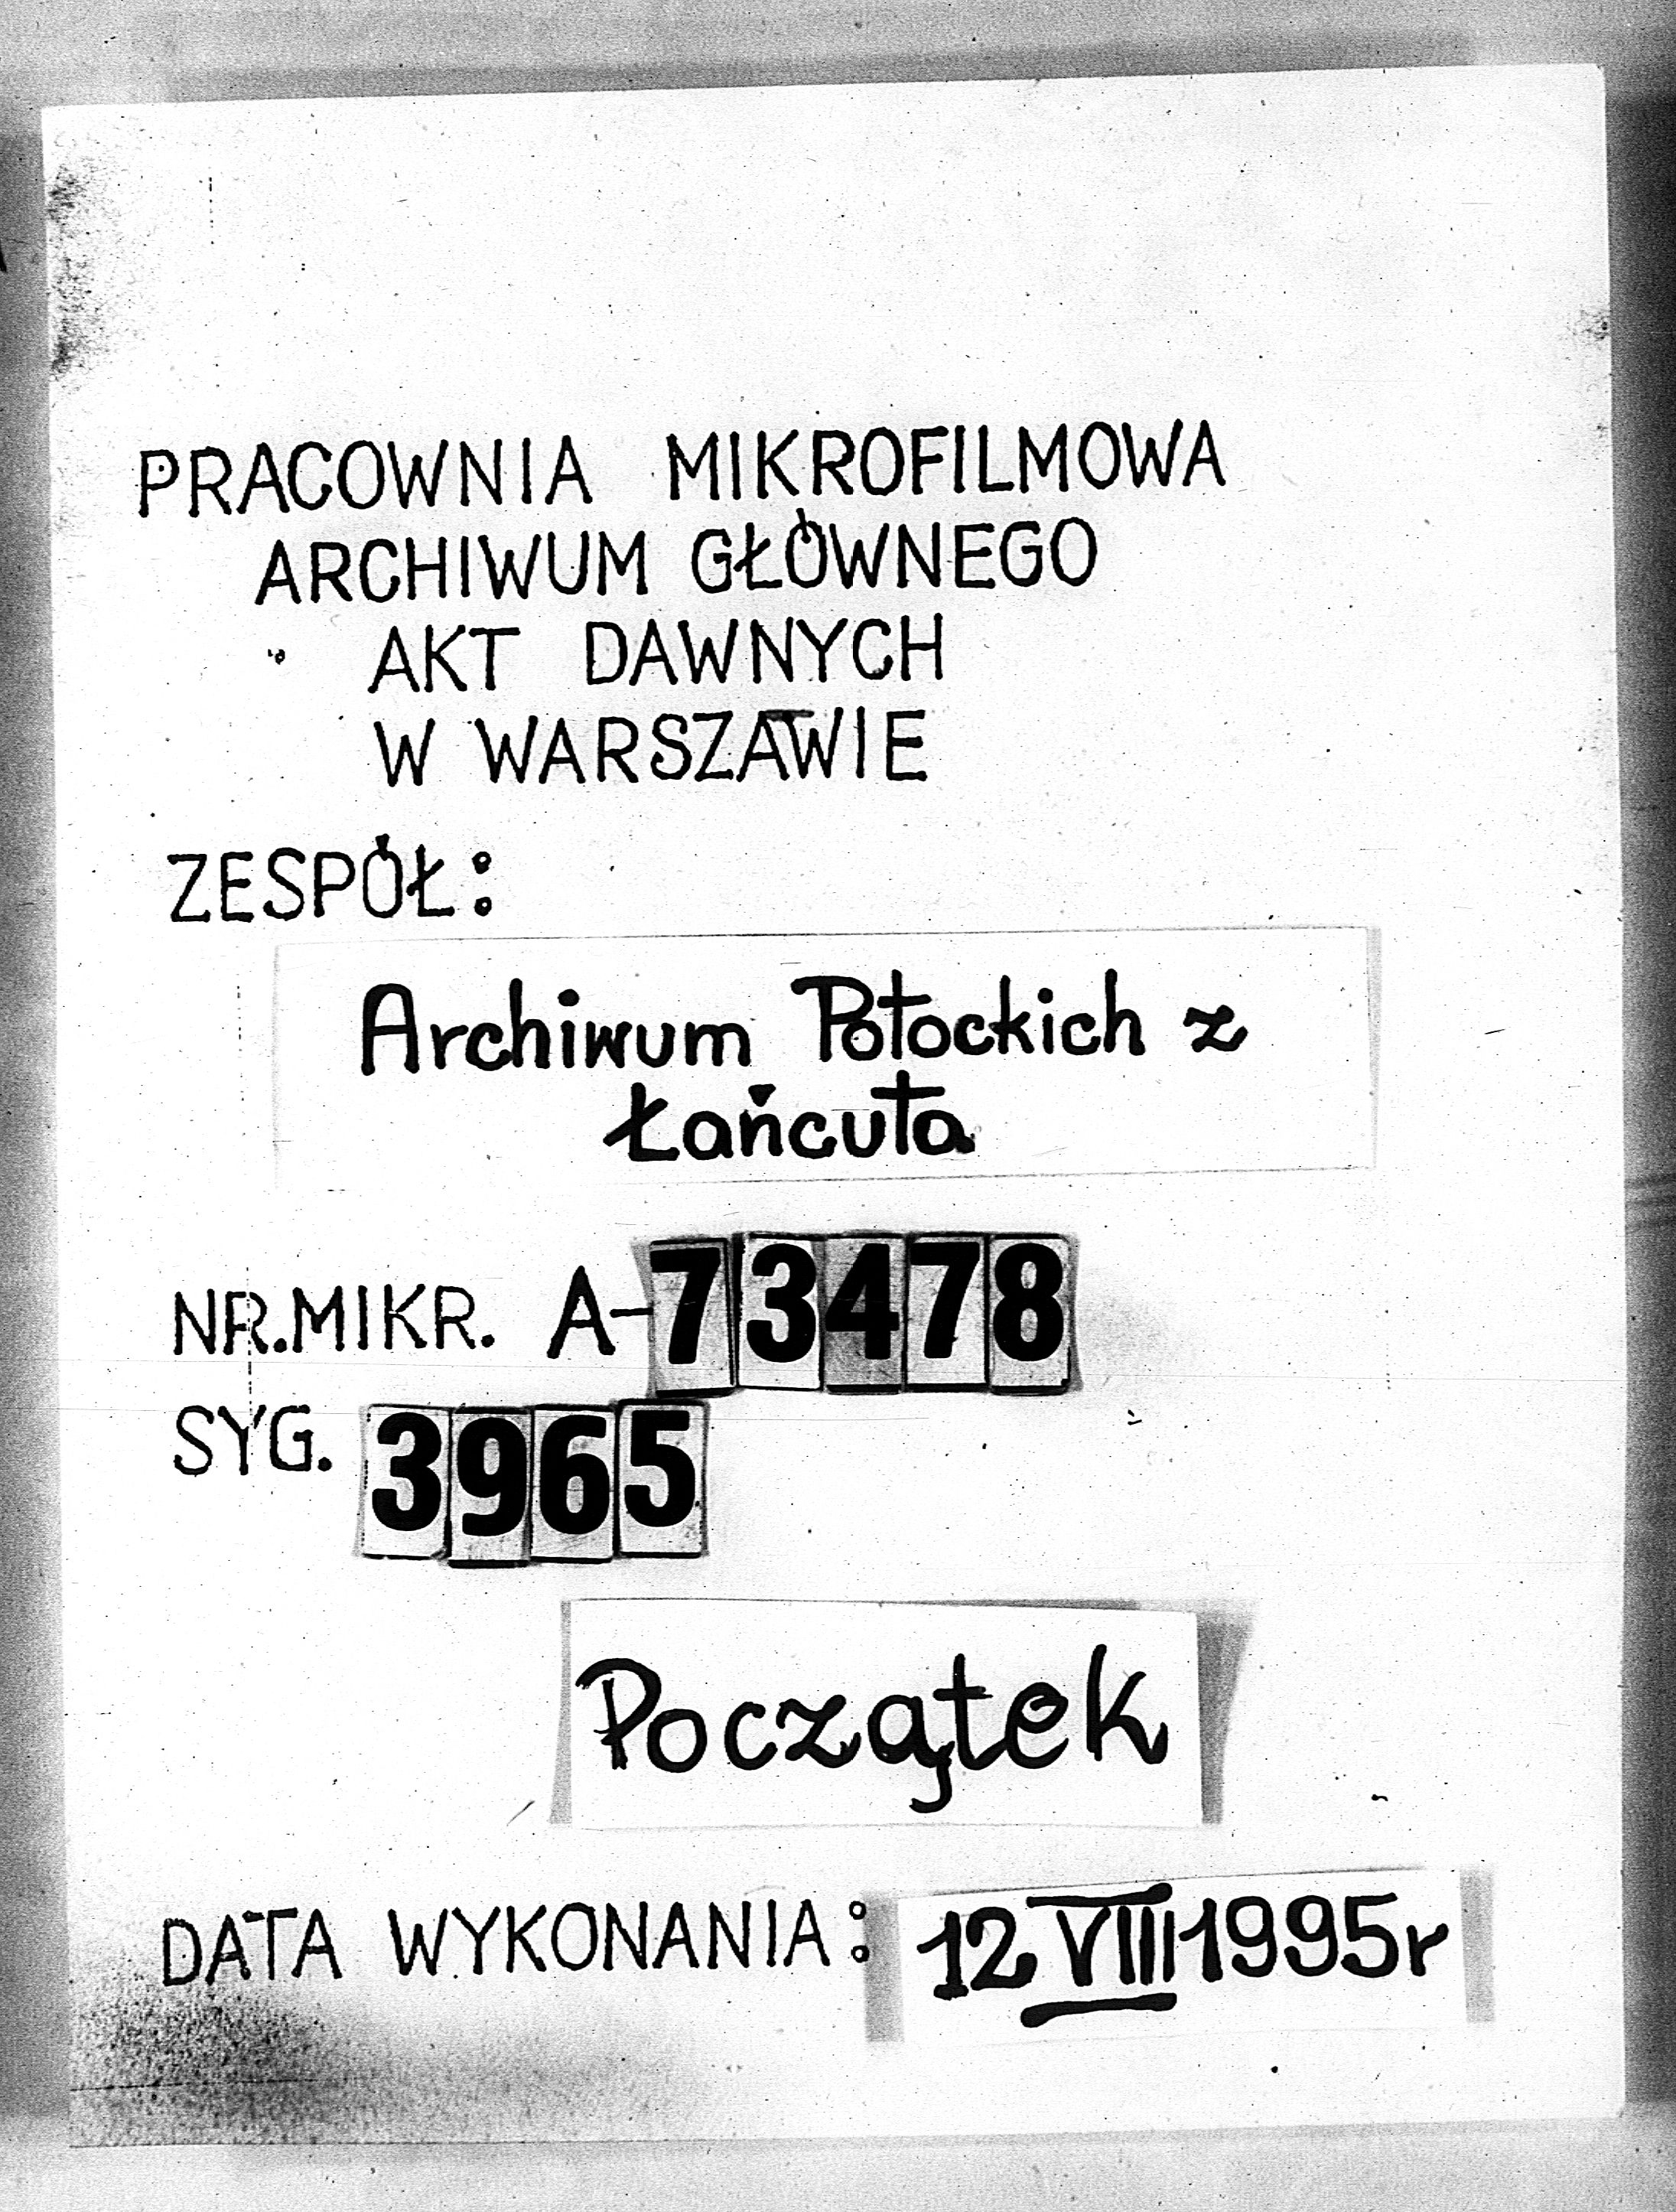 PRACOWNIA MIKROFILMOWA
ARCHIWUM GŁÓWNEGO
AKT DAWNYCH
W WARSZAWIE
ZESPÓŁ:
Archiwum Potockich z
Łańcuta
NR.MIKR. A-73478
SYG. 3965
Początek
DATA WYKONANIA: 12 VIII 1995r